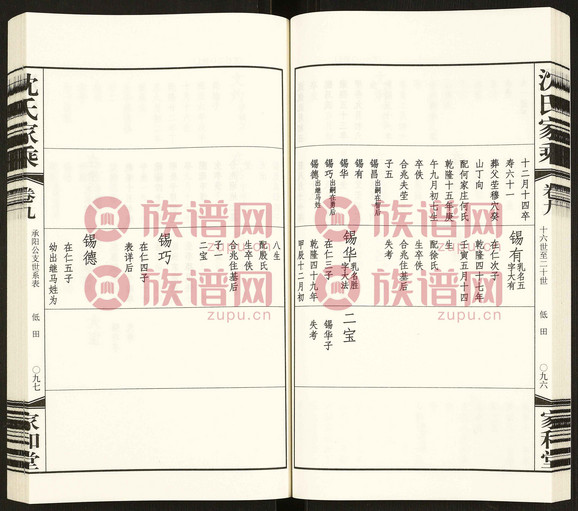 沈氏家乘
卷九
十六世至二十世
低田
〇九六
家和堂
十二月十四卒
寿六十一
葬父茔穆穴癸
山丁向
配何家庄何氏
乾隆十五年庚
午九月初七生
卒佚
合兆夫茔
子五
锡昌出嗣在勇后
锡有
锡华
锡巧出嗣在明后
锡德出继马姓
锡有乳名五字大有
在仁次子
乾隆四十七年
壬寅五月十四
生
配徐氏
生卒佚
合兆住基后
失考
锡华乳名胜字大法
在仁三子
乾隆四十九年
甲辰十二月初
二宝
锡华子
失考
沈氏家乘
卷九
承阳公支世系表
低田
〇九七
家和堂
八生
配殷氏
生卒佚
合兆住基后
子一
二宝
锡巧
在仁四子
表详后
锡德
在仁五子
幼出继马姓为
族谱网
zupu.cn
族谱网
zupu.cn
族谱网
zupu.cn
族谱网
zupu.cn